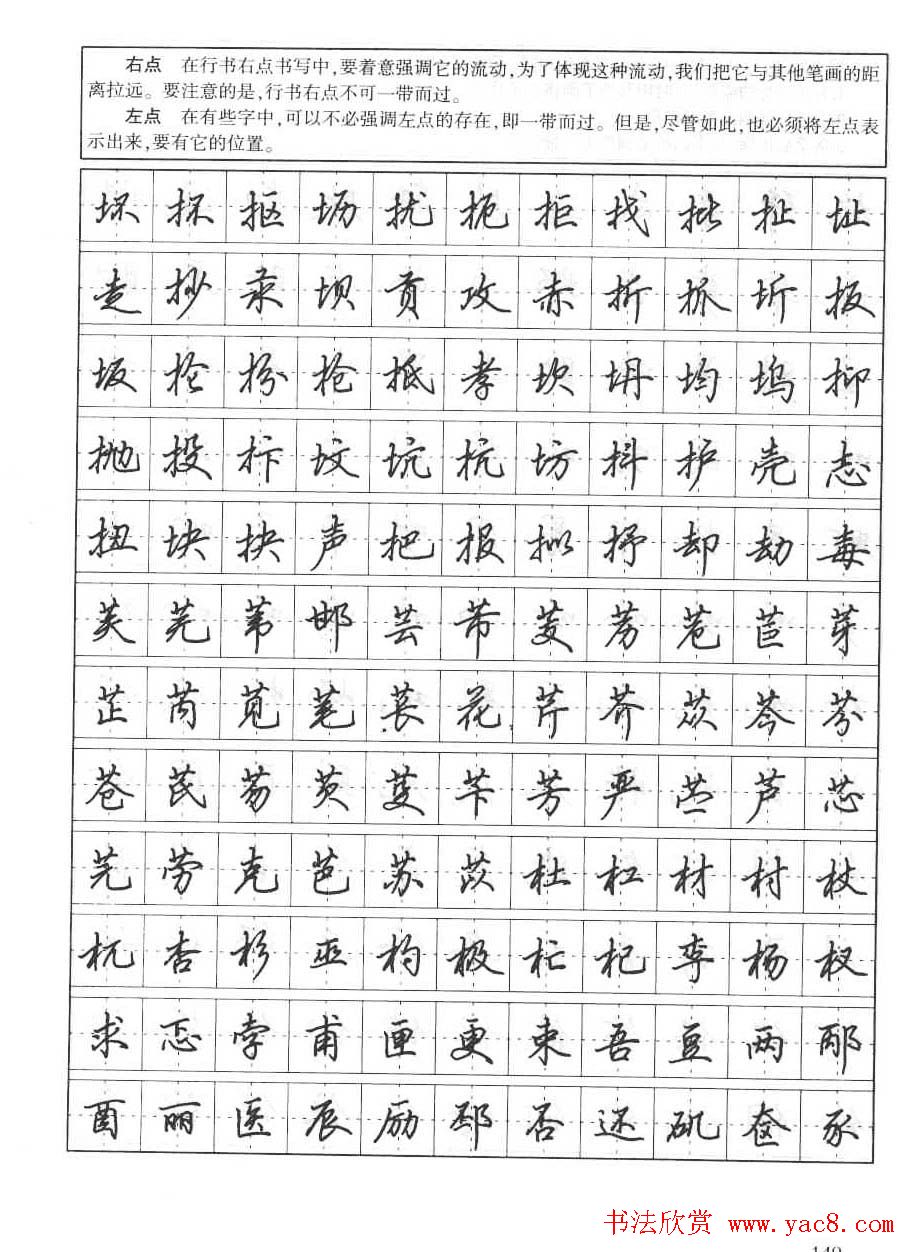 右点 在行书右点书写中,要着意强调它的流动,为了体现这种流动,我们把它与其他笔画的距
离拉远。要注意的是,行书右点不可一带而过。
左点 在有些字中,可以不必强调左点的存在,即一带而过。但是,尽管如此,也必须将左点表
示出来,要有它的位置。
坏 抔 抠 坜 扰 扼 拒 找 批 扯 址
走 抄 汞 坝 贡 攻 赤 折 抓 圻 扳
坂 抡 扮 抢 抵 孝 坎 坍 均 坞 抑
抛 投 抃 坟 坑 抗 坊 抖 护 壳 志
扭 块 抉 声 把 报 拟 抒 却 劫 毒
芙 芫 苇 邯 芸 芾 芰 苈 苊 苣 芽
芷 芮 苋 芼 苌 花 芹 芥 苁 芩 芬
苍 芪 芴 芡 芟 苄 芳 严 苎 芦 芯
芜 劳 克 芭 苏 苡 杜 杠 材 村 杖
杌 杏 杉 巫 杓 极 杧 杞 李 杨 杈
求 忑 孛 甫 匣 更 束 吾 豆 两 邴
酉 丽 医 辰 励 邳 否 还 矶 奁 豕
书法欣赏 www.yac8.com
140